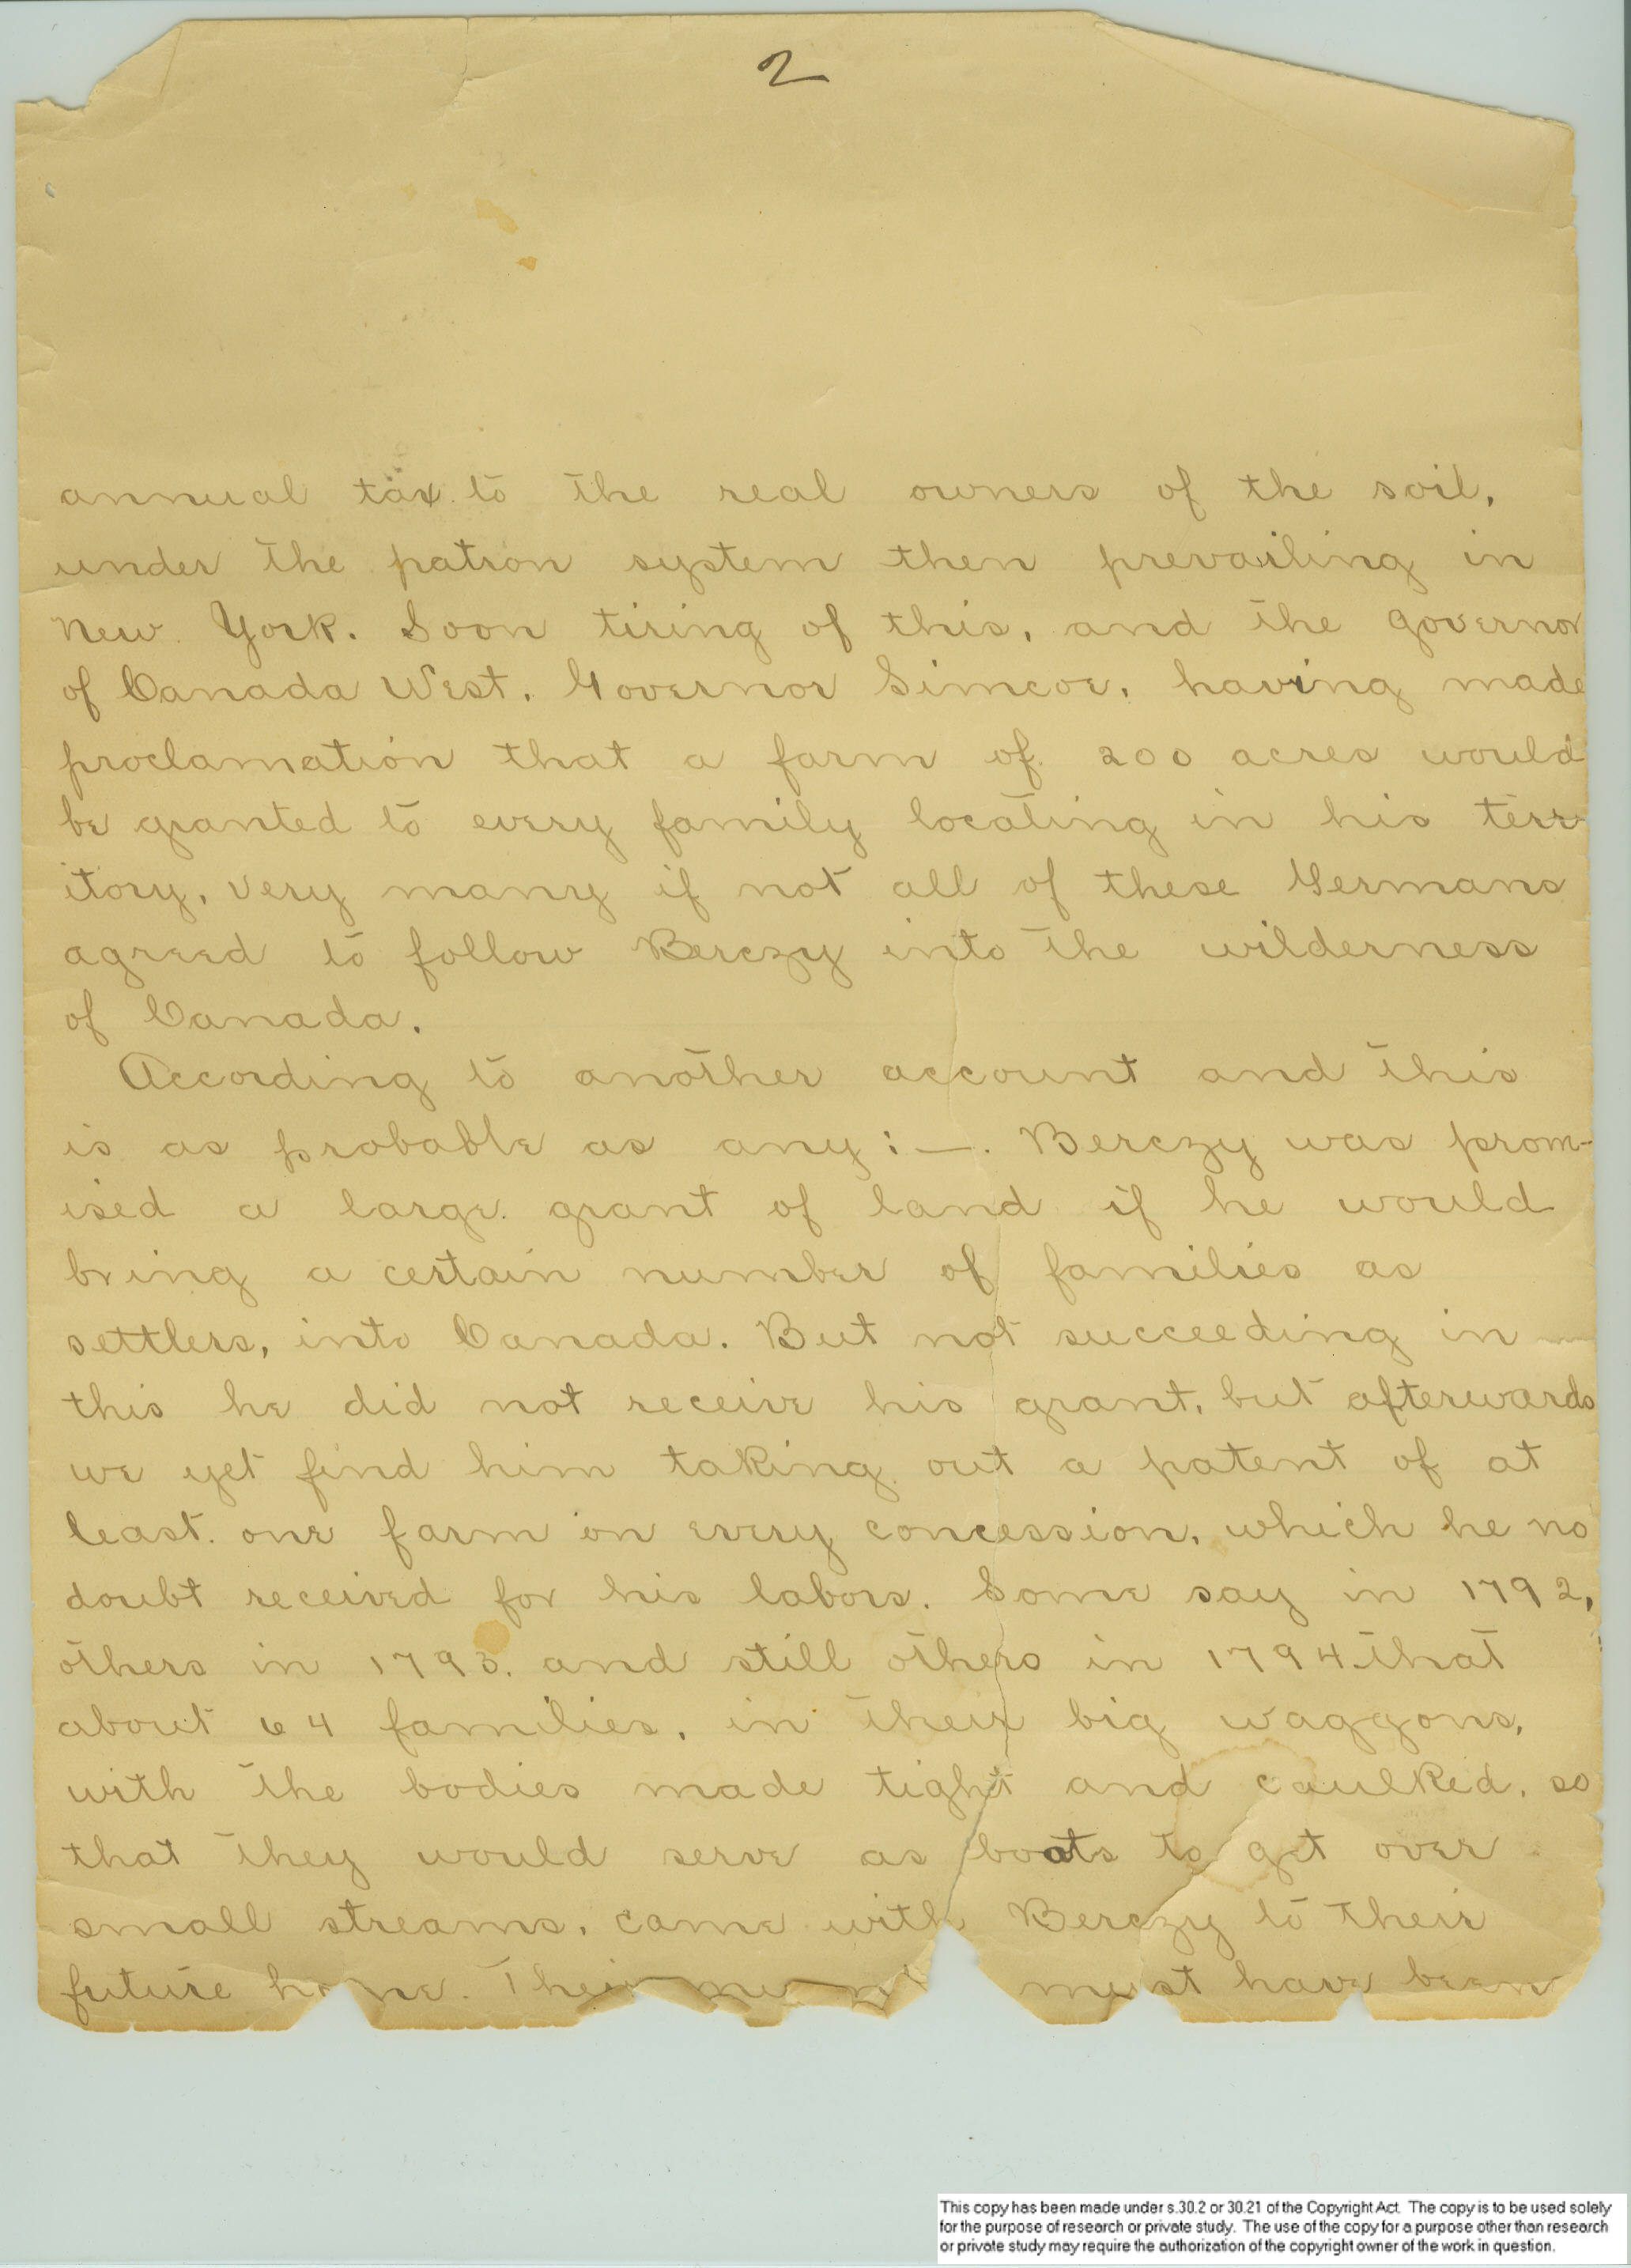 2
annual tax to the real owners of the soil,
under the patron system then prevailing in
New York. Soon tiring of this, and the governor
of Canada West, Governor Simcoe, having made
proclamation that a farm of 200 acres would
be granted to every family locating in his terr-
itory, very many if not all of these Germans
agreed to follow Berczy into the wilderness
of Canada.
According to another account and this
is as probable as any:—. Berczy was prom-
ised a large grant of land if he would
bring a certain number of families as
settlers, into Canada. But not succeeding in
this he did not receive his grant, but afterwards
we yet find him taking out a patent of at
least one farm on every concession, which he no
doubt received for his labors. Some say in 1792,
others in 1793. and still others in 1794 that
about 64 families, in their big waggons,
with the bodies made tight and caulked, so
that they would serve as boats to get over
small streams, came with Berczy to their
future home. Their must have been
This copy has been made under s.30.2 or 30.21 of the Copyright Act. The copy is to be used solely
for the purpose of research or private study. The use of the copy for a purpose other than research
or private study may require the authorization of the copyright owner of the work in question.